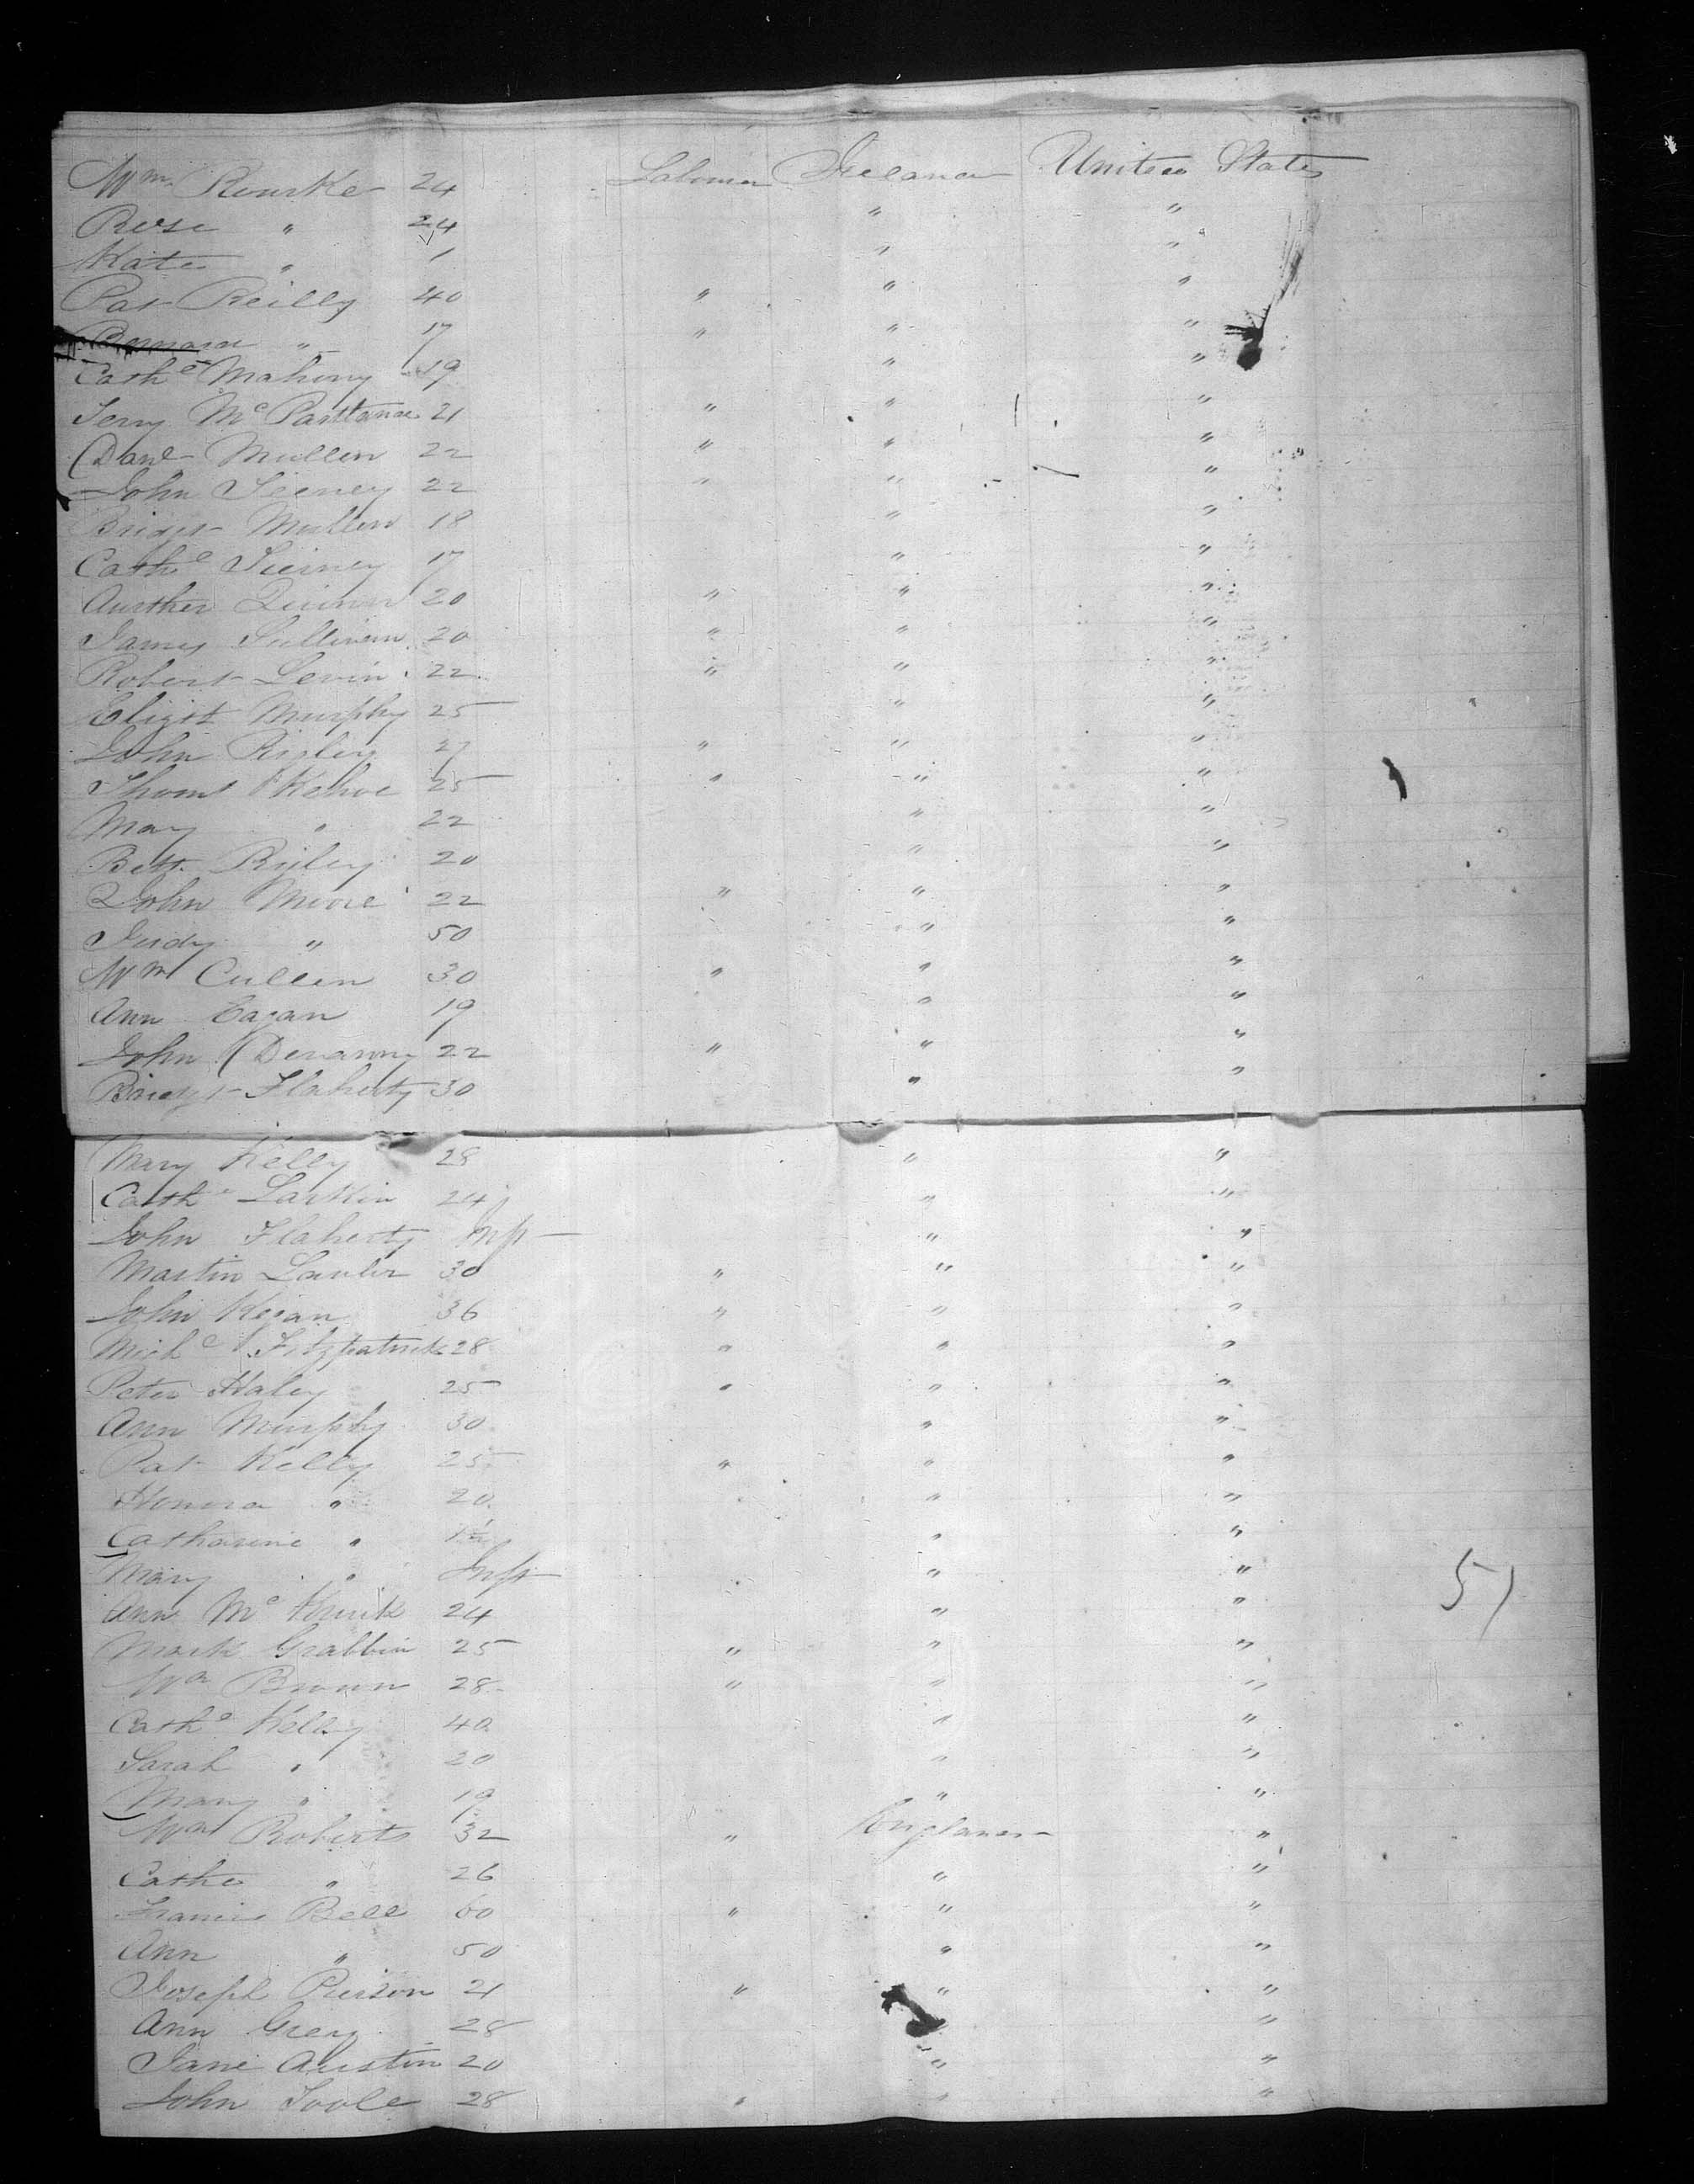 Wm Rourke 24 Laborer Ireland United States
Rose " 24 " "
Kate " 1 " "
Pat Reilly 40 " " "
Bernard " 17 " " "
Cathe Mahony 19 " "
Terry McPartland 21 " " "
Danl Mullen 22 " " "
John Tierney 22 " " "
Bridgt Mullen 18 " "
Cathe Tierney 17 " "
Aurther Quinn 20 " " "
James Sullivan 20 " " "
Robert Levin 22 " " "
Elizth Murphy 25 " "
John Rigley 27 " " "
Thoms Kehoe 25 " " "
Mary " 22 " "
Bett. Rigley 20 " "
John Moore 22 " " "
Judy " 50 " "
Wm Cullen 30 " " "
Ann Eagan 19 " "
John Devanny 22 " " "
Bridgt Flaherty 30 " "
Mary Kelly 28 " "
Cathe Larkin 24 " "
John Flaherty Inft " "
Martin Lawler 30 " " "
John Kegan 36 " " "
Michl Fitzpatrick 28 " " "
Peter Haley 25 " " "
Ann Murphy 30 " "
Pat Kelly 25 " " "
Honora " 20 " "
Catharine " 1½ " "
Mary " Inft " "
Ann Mc 24 " "
Mark Grabbin 25 " " "
Wm Brown 28 " " "
Cathe Kelly 40 " "
Sarah " 20 " "
Mary " 19 " "
Wm Roberts 32 " England "
Cathe " 26 " "
Francis Bell 60 " " "
Ann " 50 " "
Joseph Pierson 21 " " "
Ann Grey 28 " "
Jane Austin 20 " "
John Toole 28 " " "
51